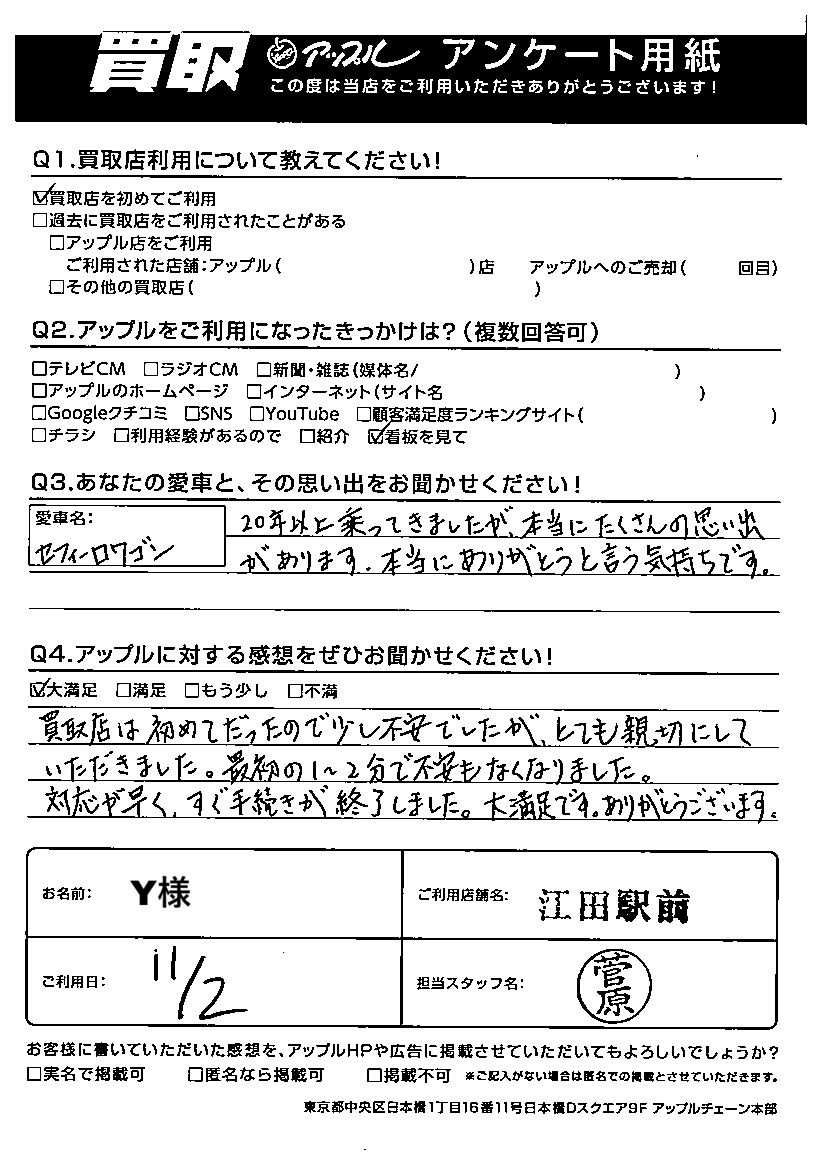 買取 アップル アンケート用紙
この度は当店をご利用いただきありがとうございます!
Q1.買取店利用について教えてください!
☑買取店を初めてご利用
□過去に買取店をご利用されたことがある
□アップル店をご利用
ご利用された店舗:アップル( )店 アップルへのご売却( 回目)
□その他の買取店( )
Q2.アップルをご利用になったきっかけは?(複数回答可)
□テレビCM □ラジオCM □新聞・雑誌(媒体名/ )
□アップルのホームページ □インターネット(サイト名 )
□Googleクチコミ □SNS □YouTube □顧客満足度ランキングサイト( )
□チラシ □利用経験があるので □紹介 ☑看板を見て
Q3.あなたの愛車と、その思い出をお聞かせください!
愛車名:
セフィーロワゴン
20年以上乗ってきましたが、本当にたくさんの思い出
があります。本当にありがとうと言う気持ちです。
Q4.アップルに対する感想をぜひお聞かせください!
☑大満足 □満足 □もう少し □不満
買取店は初めてだったので少し不安でしたが、とても親切にして
いただきました。最初の1~2分で不安もなくなりました。
対応が早く、すぐ手続きが終了しました。大満足です。ありがとうございます。
お名前: Y様
ご利用店舗名: 江田駅前
ご利用日: 11/2
担当スタッフ名: 菅原
お客様に書いていただいた感想を、アップルHPや広告に掲載させていただいてもよろしいでしょうか?
□実名で掲載可 □匿名なら掲載可 □掲載不可 ※ご記入がない場合は匿名での掲載とさせていただきます。
東京都中央区日本橋1丁目16番11号日本橋Dスクエア9F アップルチェーン本部